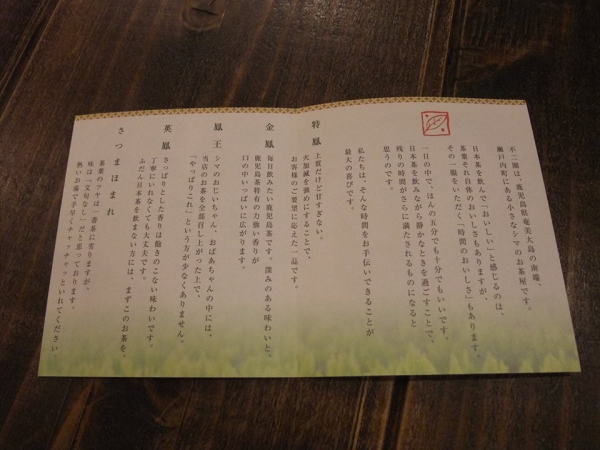 不二園は、鹿児島県奄美大島の南端、
瀬戸内町にある小さなシマのお茶屋です。
日本茶を飲んで「おいしい」と感じるのは、
茶葉それ自体のおいしさもありますが、
その一服をいただく「時間のおいしさ」もあります。
一日の中で、ほんの五分でも十分でもいいです。
日本茶を飲みながら静かなときを過ごすことで、
残りの時間がさらに満たされるものになると
思うのです。
私たちは、そんな時間をお手伝いできることが
最大の喜びです。
特鳳
上質だけど甘すぎない。
火加減を強めにすることで、
お客様のご要望に応えた一品です。
金鳳
毎日飲みたい鹿児島茶です。深みのある味わいと、
鹿児島茶特有の力強い香りが
口の中いっぱいに広がります。
鳳王
シマのおじいちゃん、おばあちゃんの中には、
当店のお茶を全部召し上がった上で、
「やっぱりこれ」という方が少なくありません。
英鳳
さっぱりとした香りは飽きのこない味わいです。
丁寧にいれなくても大丈夫です。
ふだん日本茶を飲まない方には、まずこのお茶を。
さつまほまれ
茶葉のツヤは一番茶に劣りますが、
味は「文句なし」だと思っております。
熱いお湯で手早くチャッチャッといれてください。